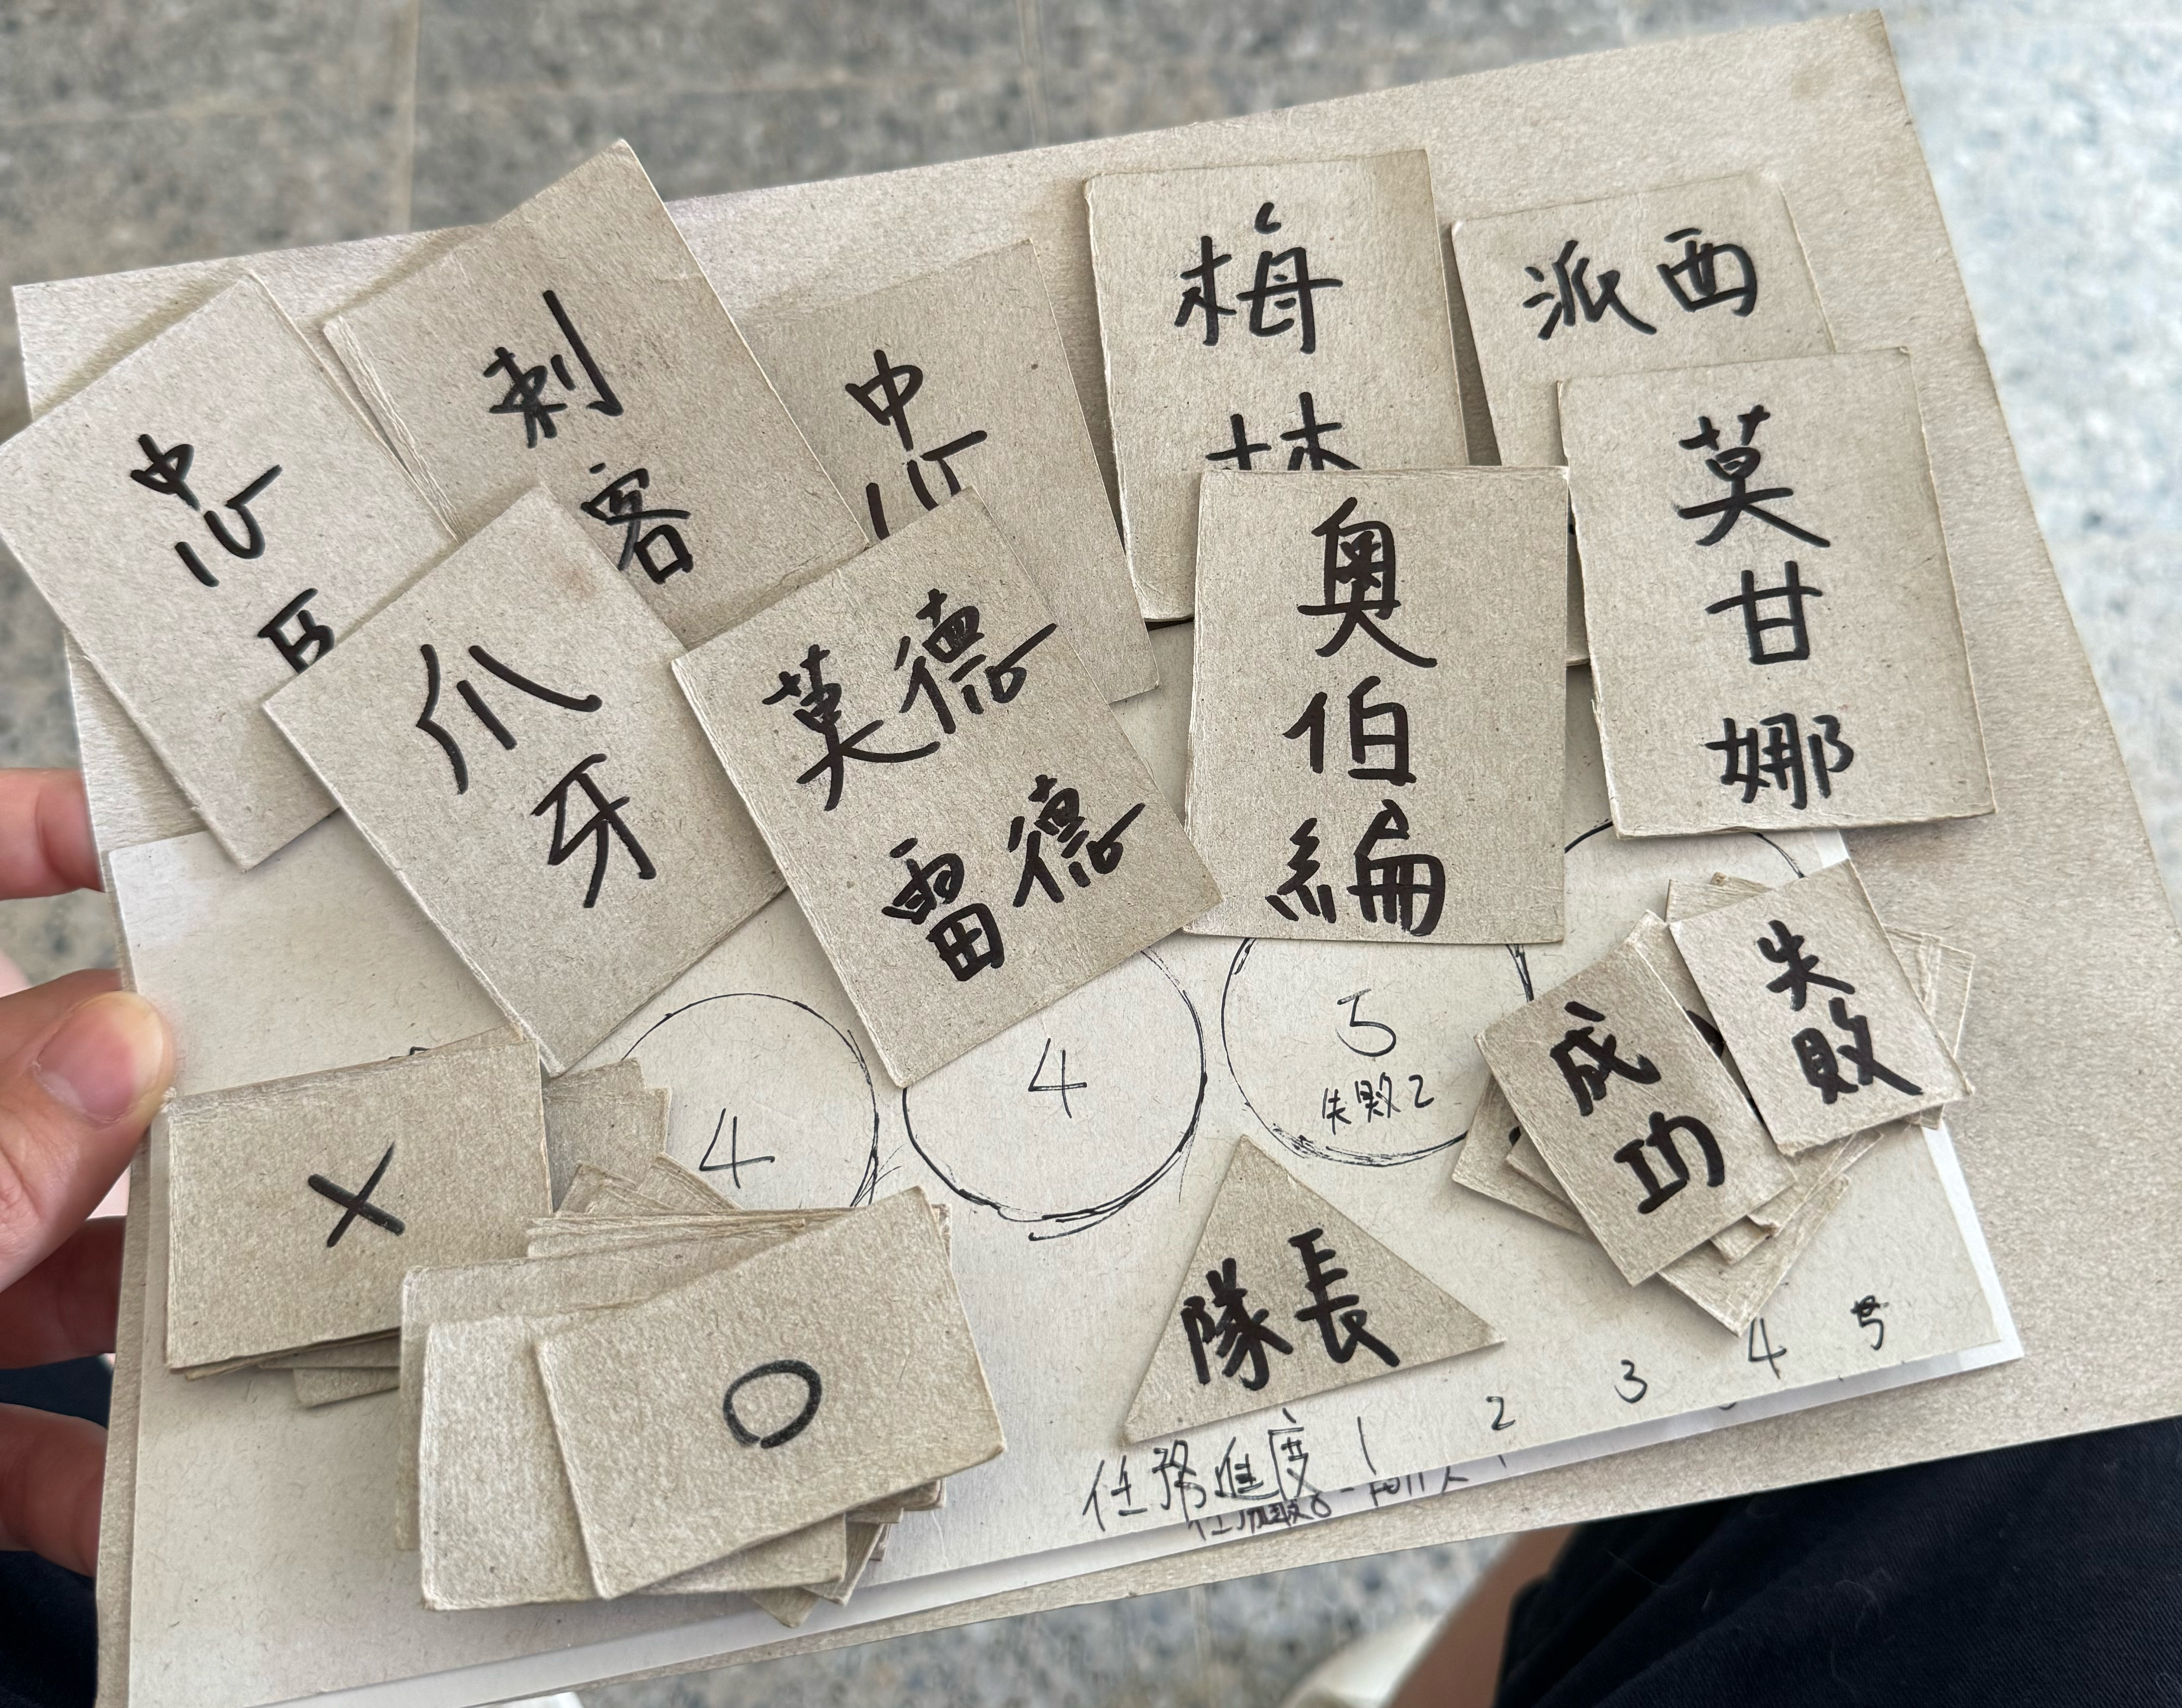 忠
臣
刺
客
忠
梅
林
派西
莫
甘
娜
爪
牙
莫德
雷德
奧
伯
編
4
4
5
失敗2
成
功
失
敗
X
O
隊長
任務進度 1 2 3 4 5